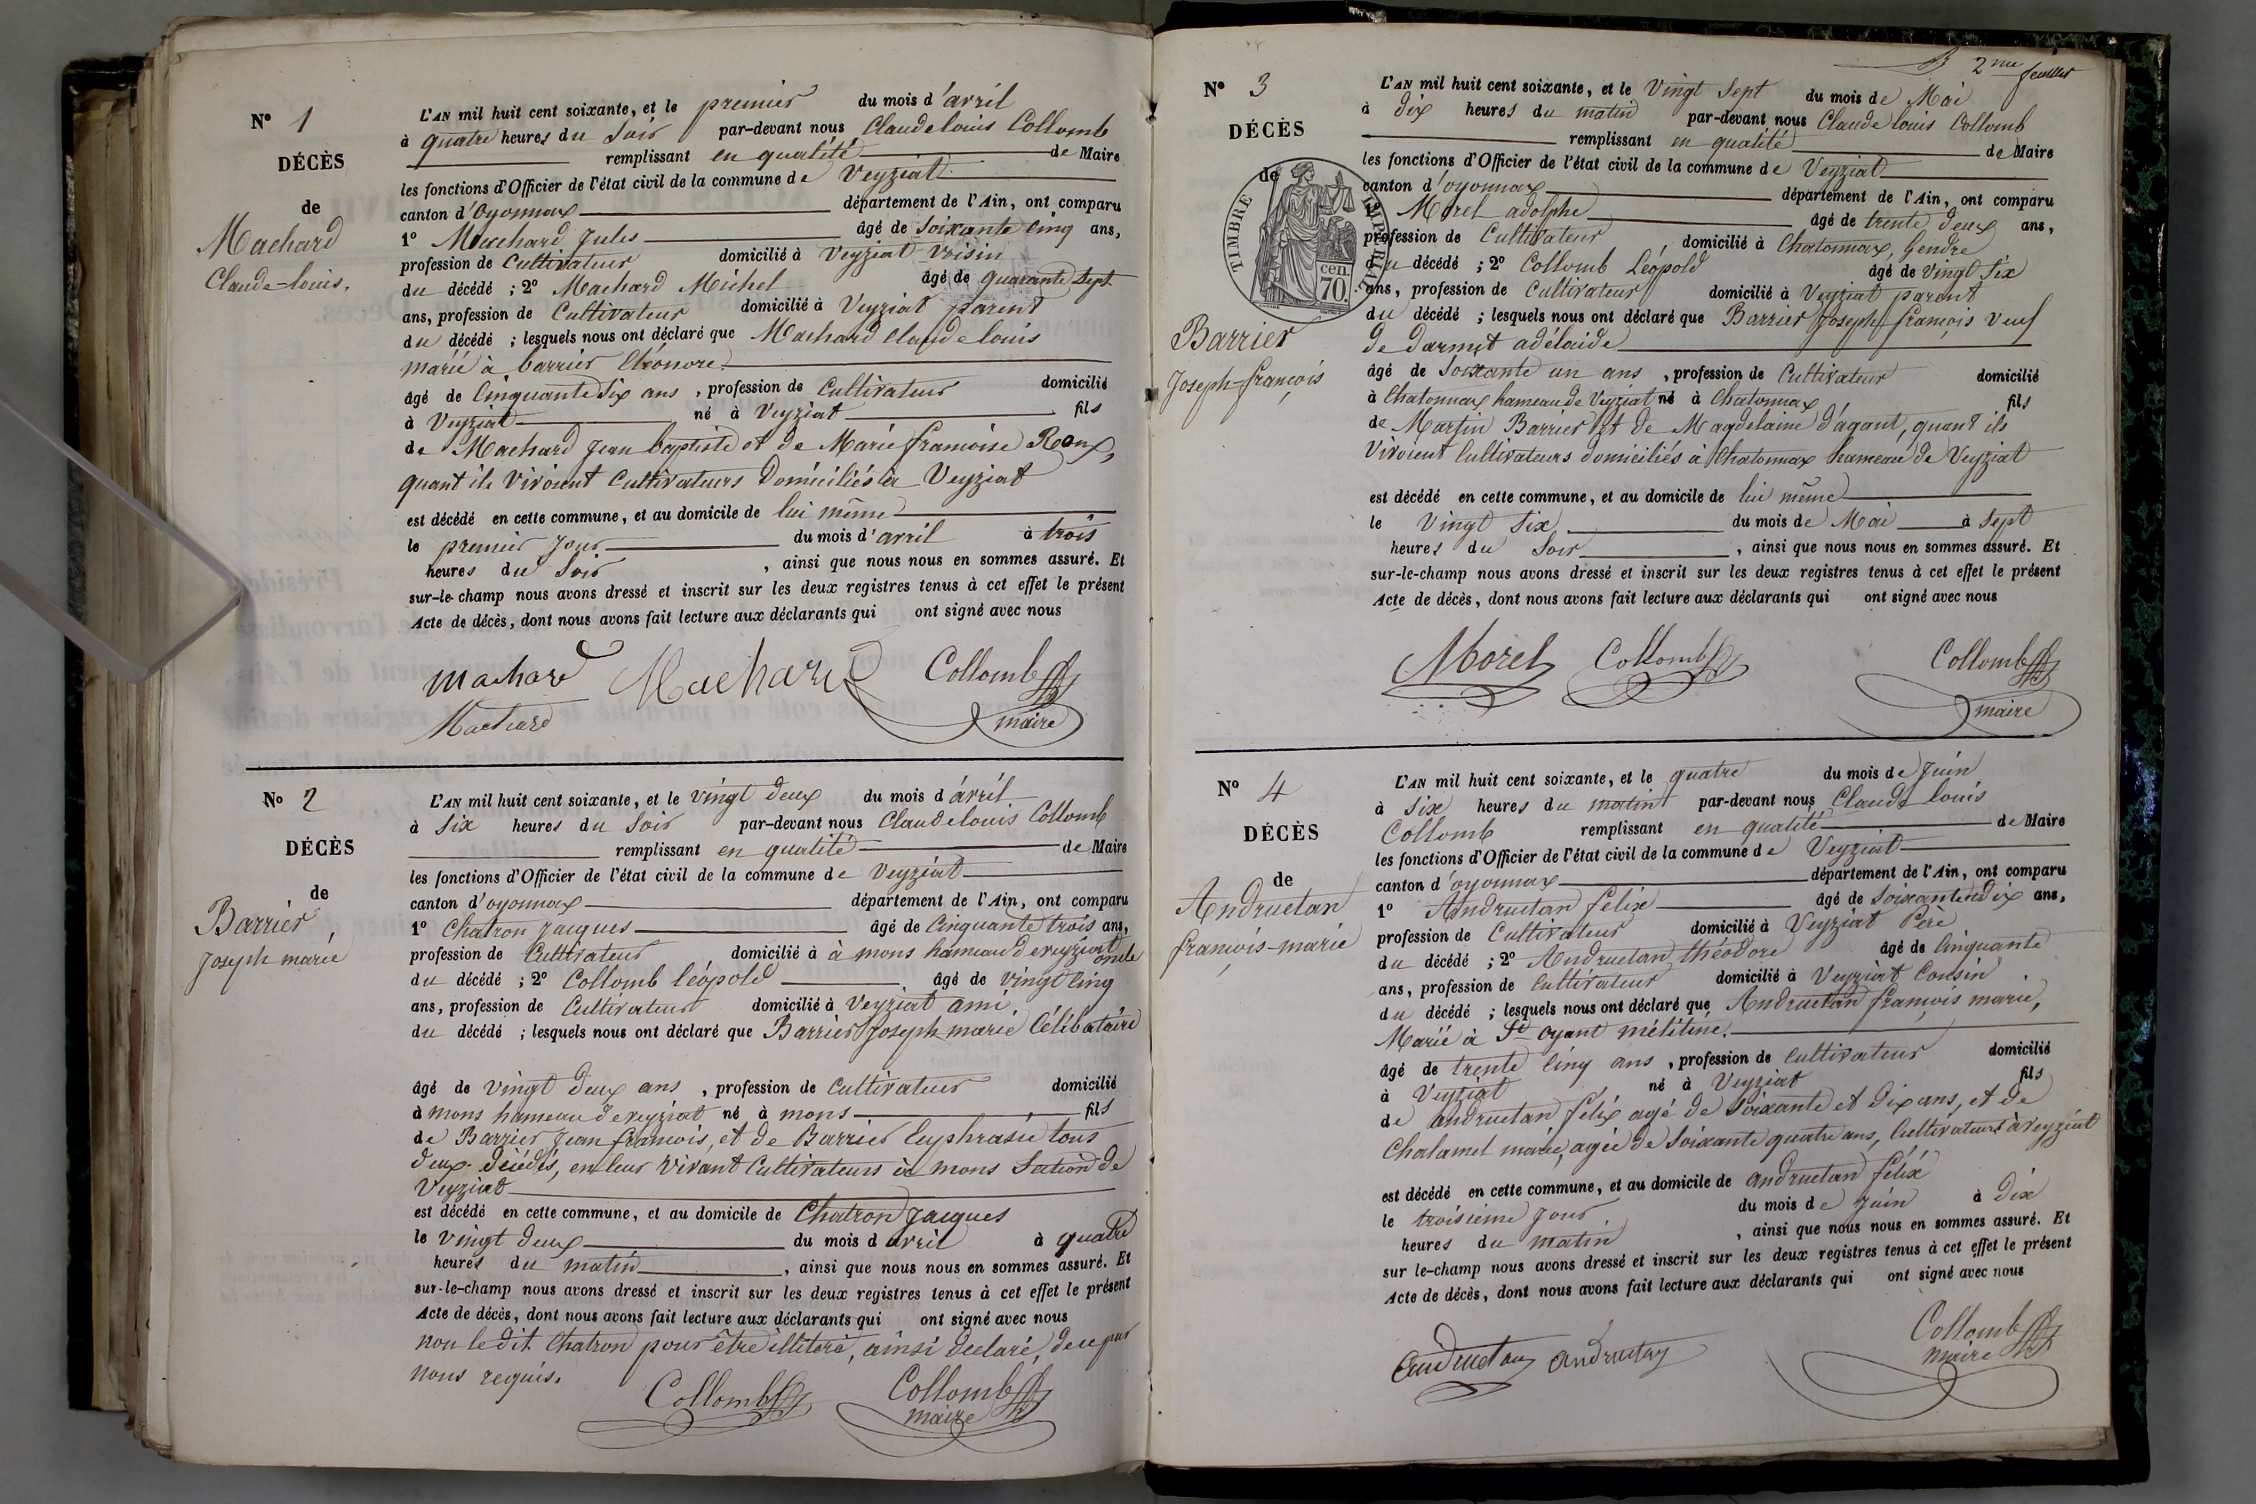 N° 1
DÉCÈS
de
Machard
Claude-louis.
L'AN mil huit cent soixante, et le premier du mois d'avril
à quatre heures du Soir par-devant nous Claude louis Collomb
remplissant en qualité de Maire
les fonctions d'Officier de l'état civil de la commune de Veyziat
canton d'Oyonnax département de l'Ain, ont comparu
1° Machard Jules âgé de Soixante cinq ans,
profession de Cultivateur domicilié à Veyziat voisin
du décédé ; 2° Machard Michel âgé de quarante Sept
ans, profession de Cultivateur domicilié à Veyziat parent
du décédé ; lesquels nous ont déclaré que Machard Claude louis
marié à barrier Eléonore
âgé de Cinquante Six ans , profession de Cultivateur domicilié
à Veyziat né à Veyziat fils
de Machard Jean baptiste et de Marie françoise Roux,
quant ils vivoient Cultivateurs Domiciliés à Veyziat
est décédé en cette commune, et au domicile de lui même
le premier Jour du mois d'avril à trois
heures du Soir , ainsi que nous nous en sommes assuré. Et
sur-le-champ nous avons dressé et inscrit sur les deux registres tenus à cet effet le présent
Acte de décès, dont nous avons fait lecture aux déclarants qui ont signé avec nous
Machard Machard Collomb
Machard maire
N° 2
DÉCÈS
de
Barrier,
Joseph marie
L'AN mil huit cent soixante, et le vingt deux du mois d'avril
à Six heures du Soir par-devant nous Claude louis Collomb
remplissant en qualité de Maire
les fonctions d'Officier de l'état civil de la commune de Veyziat
canton d'oyonnax département de l'Ain, ont comparu
1° Chatron Jacques âgé de Cinquante trois ans,
profession de Cultivateur domicilié à à mons hameau de veyziat oncle
du décédé ; 2° Collomb léopold âgé de vingt Cinq
ans, profession de Cultivateur domicilié à Veyziat ami.
du décédé ; lesquels nous ont déclaré que Barrier Joseph marie Célibataire
âgé de vingt deux ans , profession de Cultivateur domicilié
à mons hameau de veyziat né à mons fils
de Barrier Jean françois, et de Barrier Euphrasie tous
deux décédés, en leur vivant Cultivateurs à mons Section de
Veyziat
est décédé en cette commune, et au domicile de Chatron Jacques
le vingt deux du mois d avril à quatre
heures du matin , ainsi que nous nous en sommes assuré. Et
sur-le-champ nous avons dressé et inscrit sur les deux registres tenus à cet effet le présent
Acte de décès, dont nous avons fait lecture aux déclarants qui ont signé avec nous
non le dit Chatron pour être illitéré, ainsi déclaré, de ce par
nous requis.
Collomb Collomb
maire
2me feuillet
N° 3
DÉCÈS
de
TIMBRE IMPÉRIAL
70 cen.
Barrier
Joseph-françois
L'AN mil huit cent soixante, et le Vingt Sept du mois de Mai
à dix heures du matin par-devant nous Claude louis Collomb
remplissant en qualité de Maire
les fonctions d'Officier de l'état civil de la commune de Veyziat
canton d'oyonnax département de l'Ain, ont comparu
1° Morel adolphe âgé de trente deux ans,
profession de Cultivateur domicilié à Chatonnax, Gendre
du décédé ; 2° Collomb Léopold âgé de vingt Six
ans, profession de Cultivateur domicilié à Veyziat parent
du décédé ; lesquels nous ont déclaré que Barrier Joseph françois Veuf
de darmet adélaide
âgé de Soixante un ans , profession de Cultivateur domicilié
à Chatonnax hameau de Veyziat né à Chatonnax fils
de Martin Barrier et de Magdelaine d'agant, quant ils
vivoient Cultivateurs domiciliés à Chatonnax hameau de Veyziat
est décédé en cette commune, et au domicile de lui même
le Vingt Six du mois de Mai à Sept
heures du Soir , ainsi que nous nous en sommes assuré. Et
sur-le-champ nous avons dressé et inscrit sur les deux registres tenus à cet effet le présent
Acte de décès, dont nous avons fait lecture aux déclarants qui ont signé avec nous
Morel Collomb Collomb
maire
N° 4
DÉCÈS
de
Andruetan
françois-marie
L'AN mil huit cent soixante, et le quatre du mois de Juin
à Six heures du matin par-devant nous Claude louis
Collomb remplissant en qualité de Maire
les fonctions d'Officier de l'état civil de la commune de Veyziat
canton d'oyonnax département de l'Ain, ont comparu
1° Andruetan félix âgé de Soixante dix ans,
profession de Cultivateur domicilié à Veyziat Père
du décédé ; 2° Andruetan théodore âgé de Cinquante
ans, profession de Cultivateur domicilié à Veyziat Cousin
du décédé ; lesquels nous ont déclaré que Andruetan françois marie,
Marié à St oyant mélitine.
âgé de trente Cinq ans , profession de Cultivateur domicilié
à Veyziat né à Veyziat fils
de andruetan félix agé de Soixante et dix ans, et de
Chalamel marie, agée de Soixante quatre ans, Cultivateurs à veyziat
est décédé en cette commune, et au domicile de andruetan félix
le troisième Jour du mois de Juin à Dix
heures du matin , ainsi que nous nous en sommes assuré. Et
sur le-champ nous avons dressé et inscrit sur les deux registres tenus à cet effet le présent
Acte de décès, dont nous avons fait lecture aux déclarants qui ont signé avec nous
Andruetan andruetan Collomb
maire